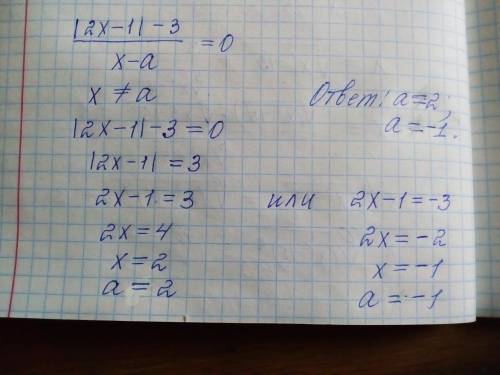 |2x-1|-3
x-a
=0
x ≠ a
|2x-1|-3=0
|2x-1|=3
2x-1=3 или 2x-1=-3
2x=4
x=2
a=2
2x=-2
x=-1
a=-1
Ответ: a=2;
a=-1.